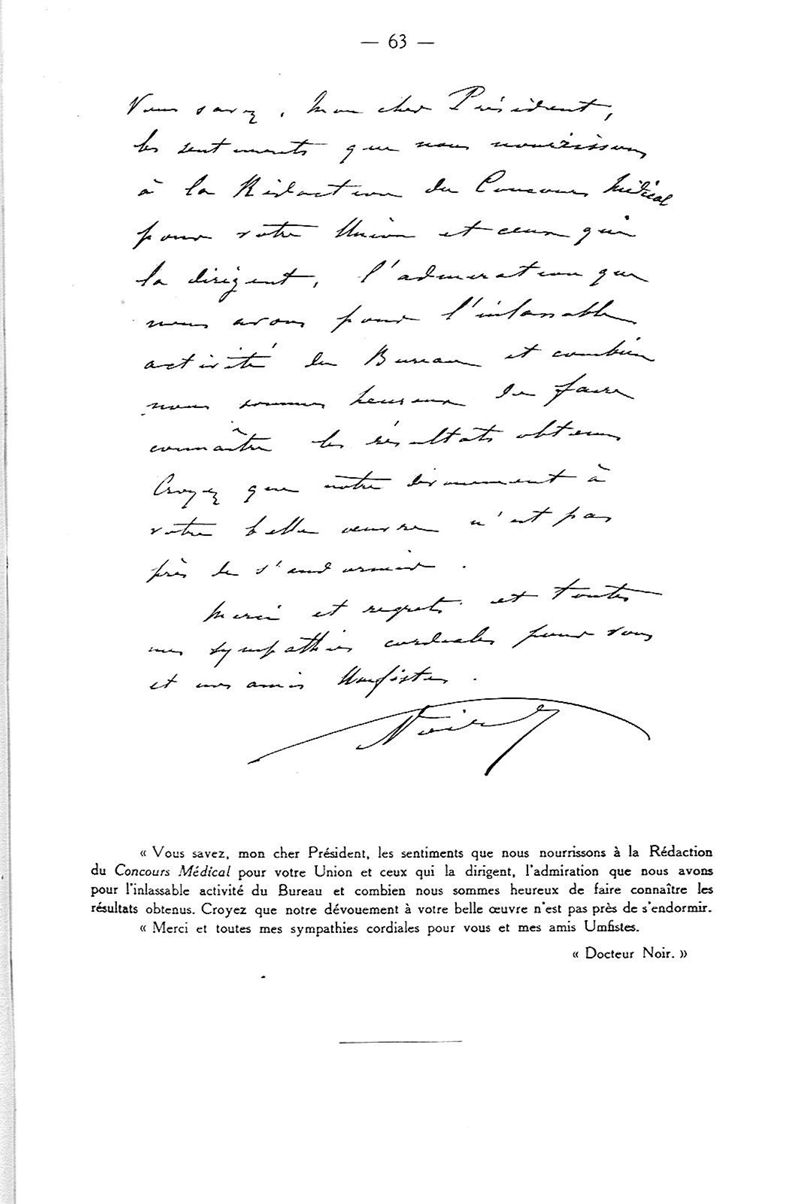 — 63 —
Vous savez, mon cher Président,
les sentiments que nous nourrissons
à la Rédaction du Concours Médical
pour votre Union et ceux qui
la dirigent, l'admiration que
nous avons pour l'inlassable
activité du Bureau et combien
nous sommes heureux de faire
connaître les résultats obtenus
Croyez que notre dévouement à
votre belle œuvre n'est pas
près de s'endormir.
Merci et regrets et toutes
mes sympathies cordiales pour vous
et mes amis Umfistes.
Noir
« Vous savez, mon cher Président, les sentiments que nous nourrissons à la Rédaction
du Concours Médical pour votre Union et ceux qui la dirigent, l'admiration que nous avons
pour l'inlassable activité du Bureau et combien nous sommes heureux de faire connaître les
résultats obtenus. Croyez que notre dévouement à votre belle œuvre n'est pas près de s'endormir.
« Merci et toutes mes sympathies cordiales pour vous et mes amis Umfistes.
« Docteur Noir. »